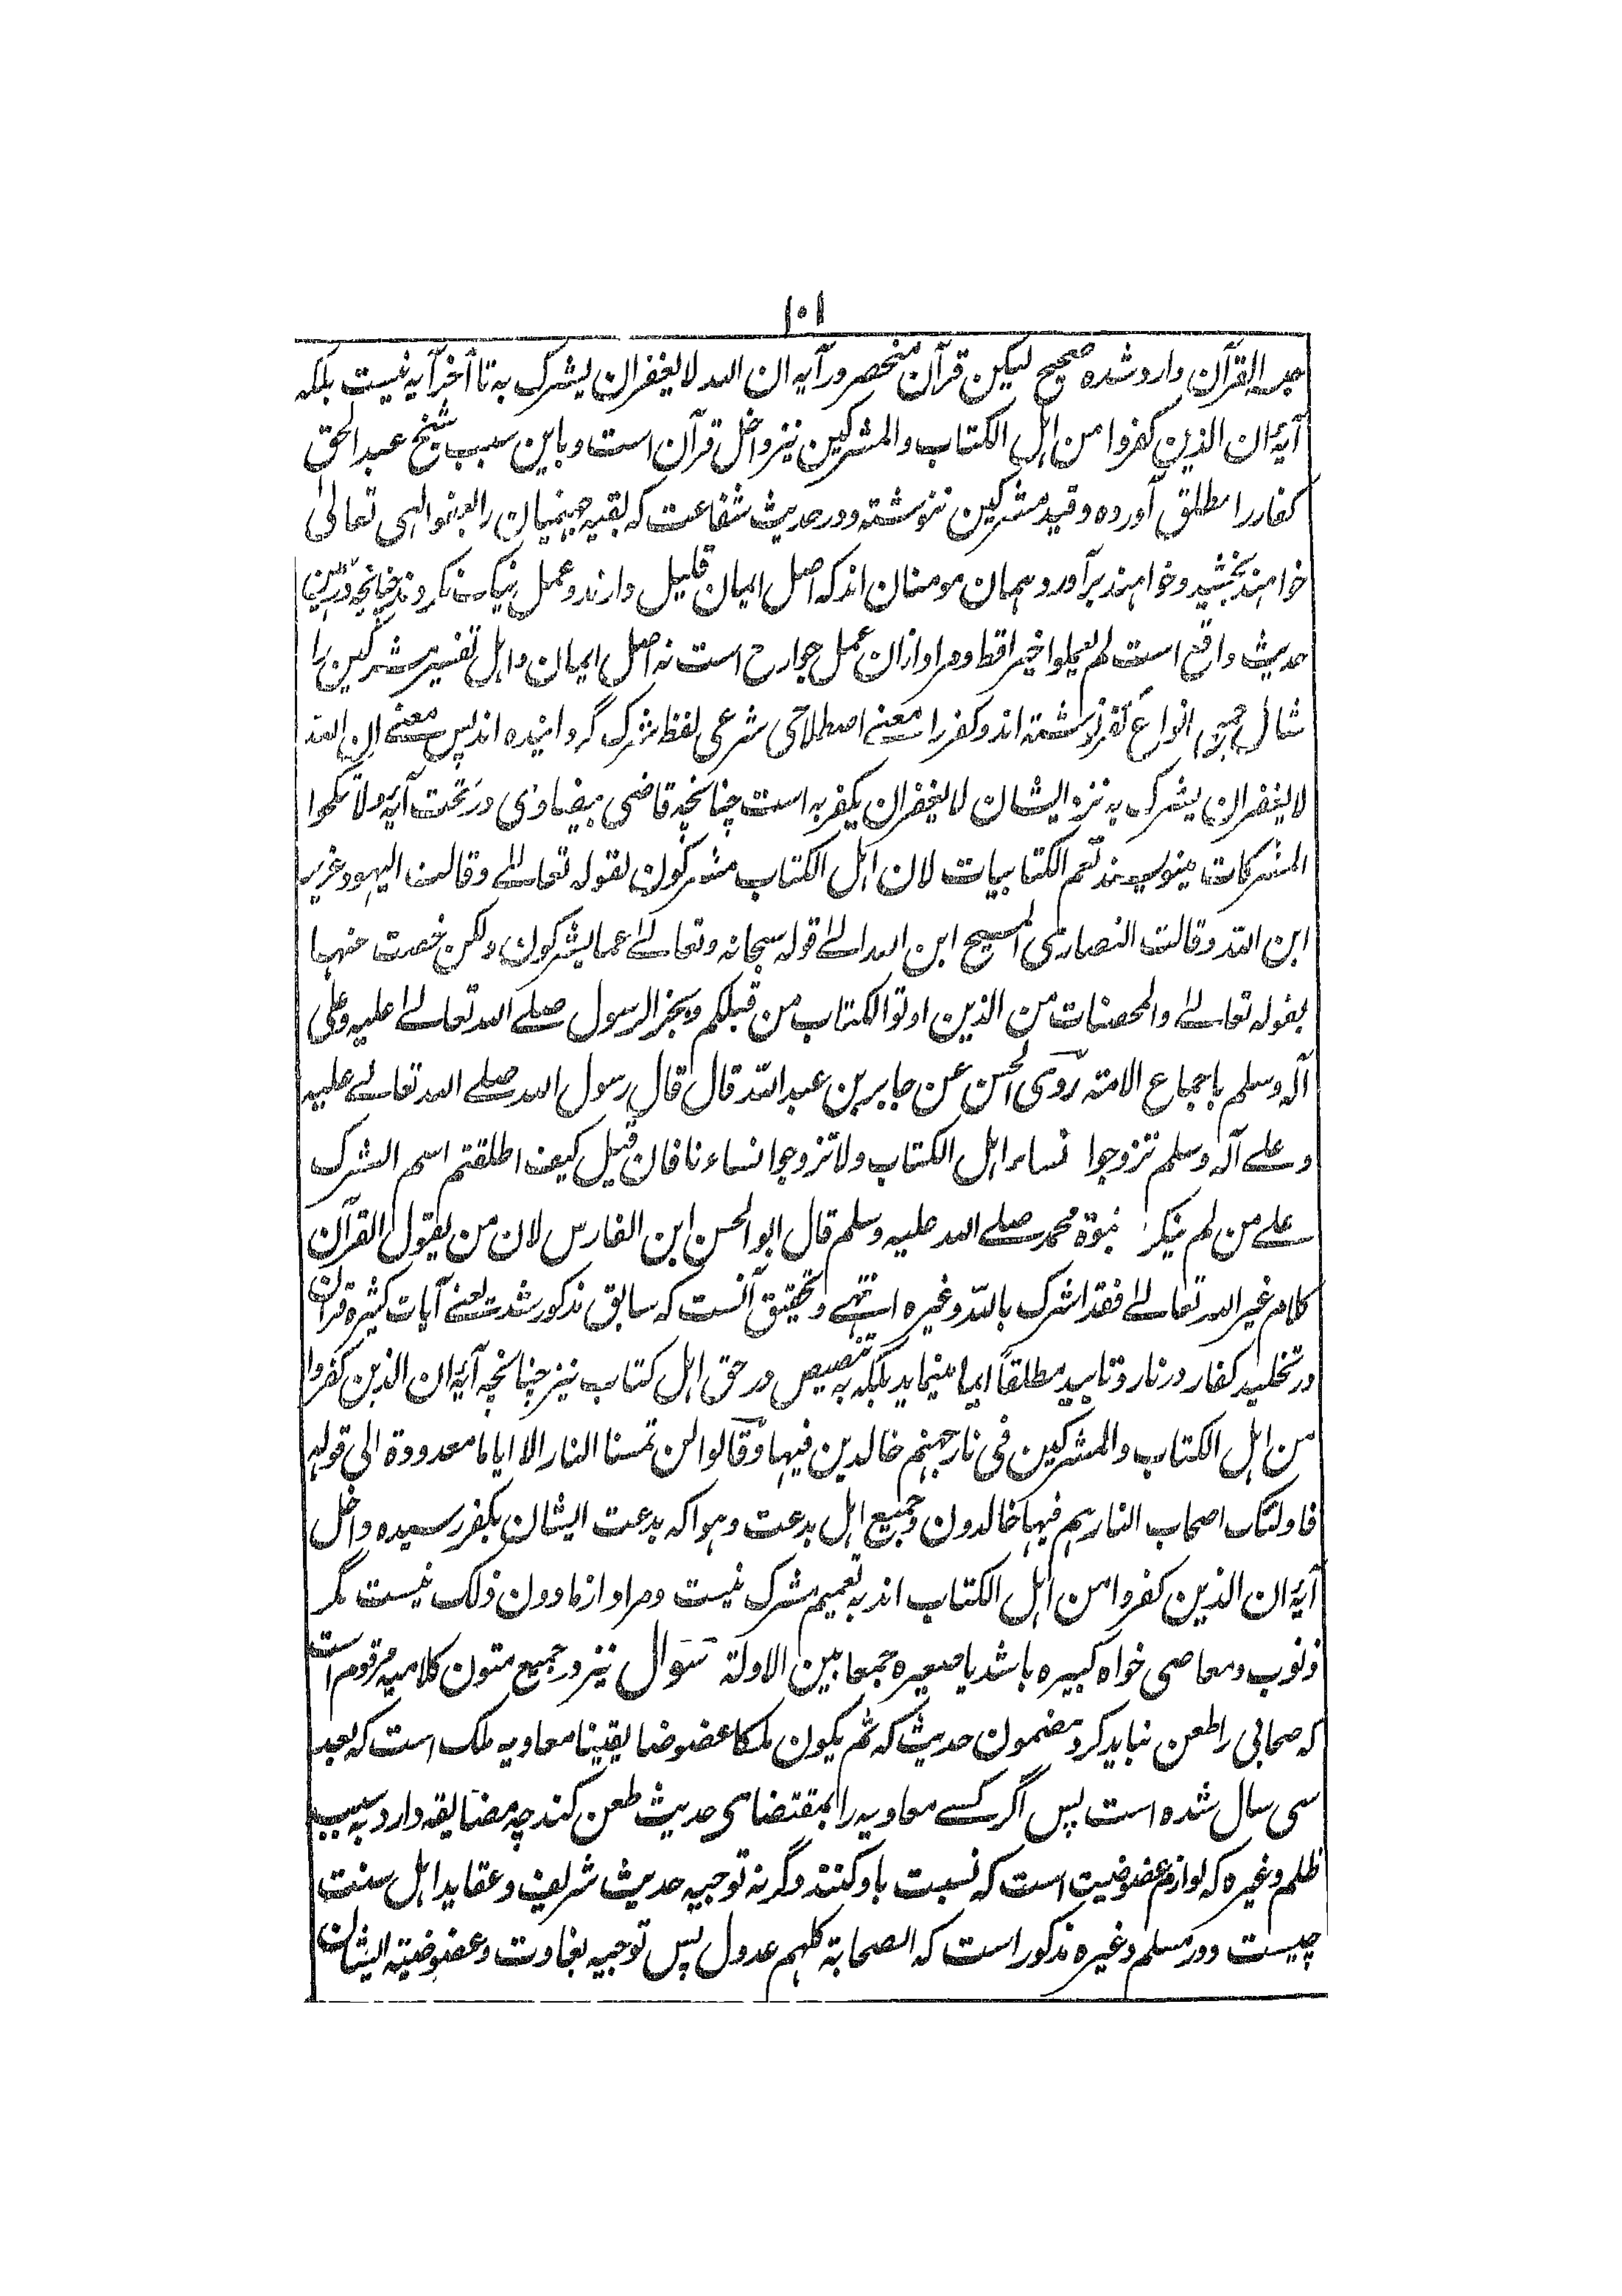 ۱۰۱
حبسه القرآن وارد شده صحیح لیکن قرآن منحصر در آیه ان الله لا یغفر ان یشرک به تا آخر آیه نیست بلکه
آیهٔ ان الذین کفروا من اہل الکتاب والمشرکین نیز داخل قرآن است و باین سبب شیخ عبد الحق
کفار را مطلق آورده و قید مشرکین ننوشته و در حدیث شفاعت که بقیه جہنمیان را بعفو الہی تعالیٰ
خواہند بخشید و خواہند برآورد ہمان مومنان اند که اصل ایمان قلیل دارند و عمل نیک نکردند چنانچه درین
حدیث واقع است لم یعملوا خیرا قط و مراد ازان عمل جوارح است نه اصل ایمان و اہل تفسیر مشرکین را
شامل جمیع انواع کفر نوشته اند و کفر را معنے اصطلاحی شرعی لفظ شرک گردانیده اند پس معنے ان الله
لا یغفر ان یشرک به نزد ایشان لا یغفر ان یکفر به است چنانچه قاضی بیضاوی در تحت آیهٔ ولا تنکحوا
المشرکات مینویسند تعم الکتابیات لان اہل الکتاب مشرکون لقوله تعالےٰ وقالت الیہود عزیر
ابن الله وقالت النصاری المسیح ابن الله الےٰ قوله سبحانه وتعالےٰ عما یشرکون ولکن خصت عنہا
بقوله تعالےٰ والمحصنات من الذین اوتوا الکتاب من قبلکم وبخبر الرسول صلے الله تعالےٰ علیه وعلی
آله وسلم باجماع الامته روی الحسن عن جابر بن عبد الله قال قال رسول الله صلے الله تعالےٰ علیه
وعلے آله وسلم تزوجوا نساء اہل الکتاب ولا تزوجوا نساءنا فان قیل کیف اطلقتم اسم الشرک
علے من لم ینکر نبوة محمد صلے الله علیه وسلم قال ابو الحسن ابن الفارس لان من یقول القرآن
کلام غیر الله تعالےٰ فقد اشرک بالله وغیره انتہے و تحقیق آنست که سابق مذکور شد یعنے آیات کثیره قرآن
در تخلید کفار در نار و تابید مطلقاً ایما مینماید بلکه به تنصیص در حق اہل کتاب نیز چنانچه آیهٔ ان الذین کفروا
من اہل الکتاب والمشرکین فی نار جہنم خالدین فیہا وقالوا لن تمسنا النار الا ایاما معدودة الی قوله
فاولئک اصحاب النار ہم فیہا خالدون و جمیع اہل بدعت و ہوا که بدعت ایشان بکفر رسیده داخل
آیهٔ ان الذین کفروا من اہل الکتاب اند به تعمیم مشرک نیست و مراد از ما دون ذلک نیست مگر
ذنوب و معاصی خواه کبیره باشد یا صغیره جمعا بین الادلة سوال نیز در جمیع متون کلامیه مرقوم است
که صحابی را طعن نباید کرد و مضمون حدیث که ثم یکون ملکا عضوضا یقینا معاویه ملک است که بعد
سی سال شده است پس اگر کسے معاویه را بمقتضای حدیث طعن کند چه مضایقه دارد به سبب
ظلم وغیره که لوازم عضوضیت است که نسبت باو کنند و گرنه توجیه حدیث شریف و عقاید اہل سنت
چیست و در مسلم وغیره مذکور است که الصحابة کلہم عدول پس توجیه بغاوت و عضوضیته ایشان